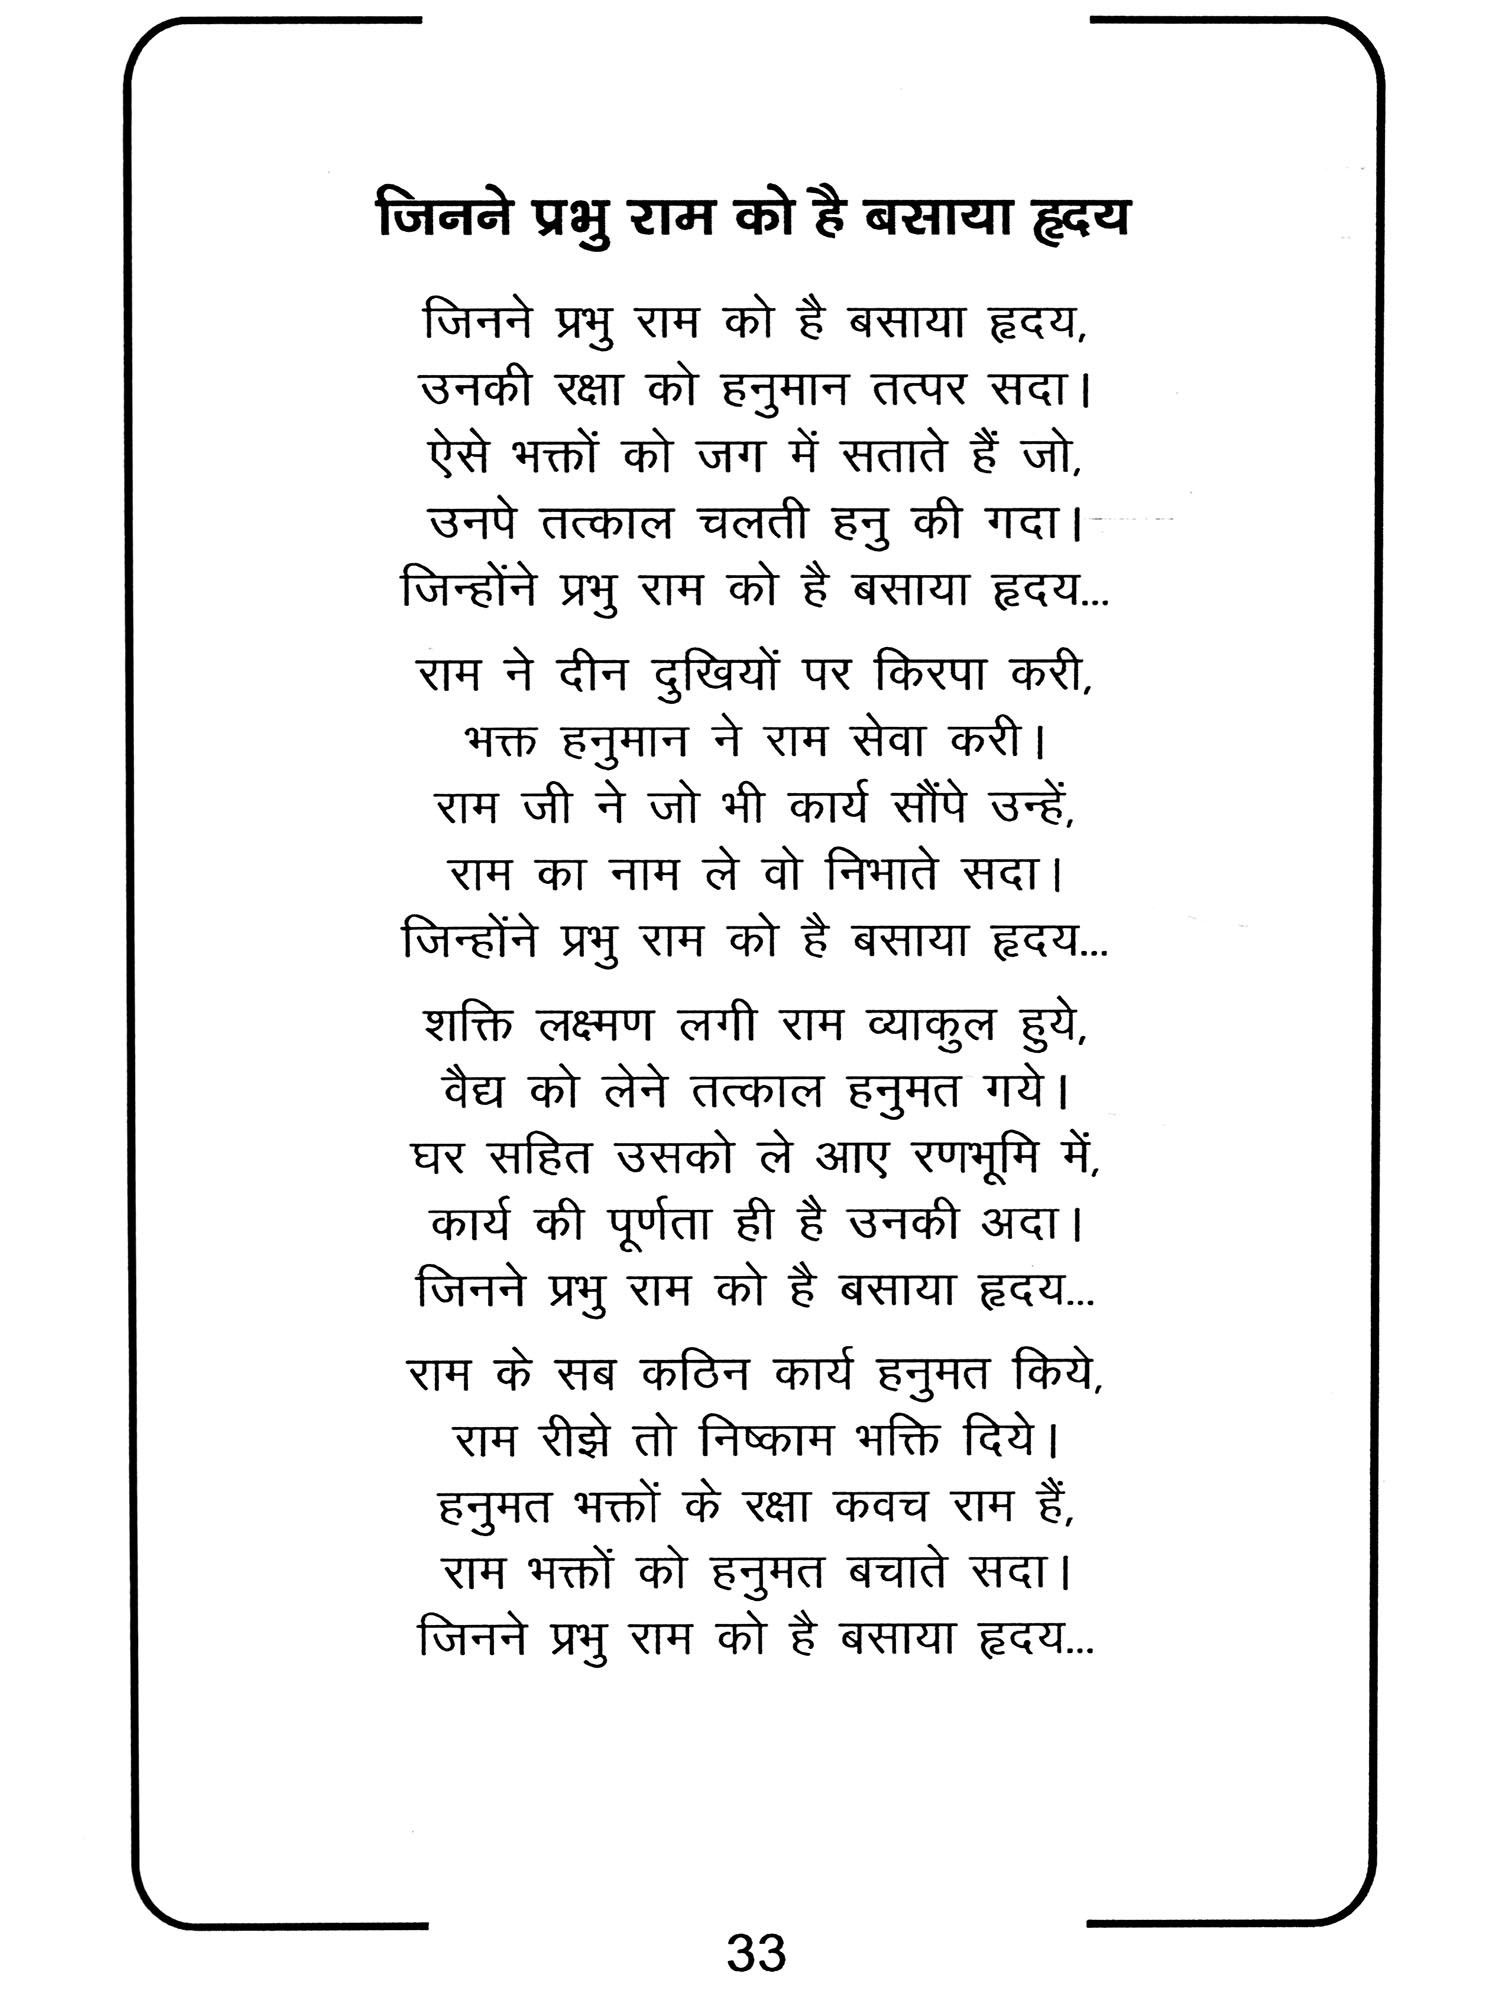 जिनने प्रभु राम को है बसाया हृदय
जिनने प्रभु राम को है बसाया हृदय,
उनकी रक्षा को हनुमान तत्पर सदा।
ऐसे भक्तों को जग में सताते हैं जो,
उनपे तत्काल चलती हनु की गदा।
जिन्होंने प्रभु राम को है बसाया हृदय...
राम ने दीन दुखियों पर किरपा करी,
भक्त हनुमान ने राम सेवा करी।
राम जी ने जो भी कार्य सौंपे उन्हें,
राम का नाम ले वो निभाते सदा।
जिन्होंने प्रभु राम को है बसाया हृदय...
शक्ति लक्ष्मण लगी राम व्याकुल हुये,
वैद्य को लेने तत्काल हनुमत गये।
घर सहित उसको ले आए रणभूमि में,
कार्य की पूर्णता ही है उनकी अदा।
जिनने प्रभु राम को है बसाया हृदय...
राम के सब कठिन कार्य हनुमत किये,
राम रीझे तो निष्काम भक्ति दिये।
हनुमत भक्तों के रक्षा कवच राम हैं,
राम भक्तों को हनुमत बचाते सदा।
जिनने प्रभु राम को है बसाया हृदय...
33